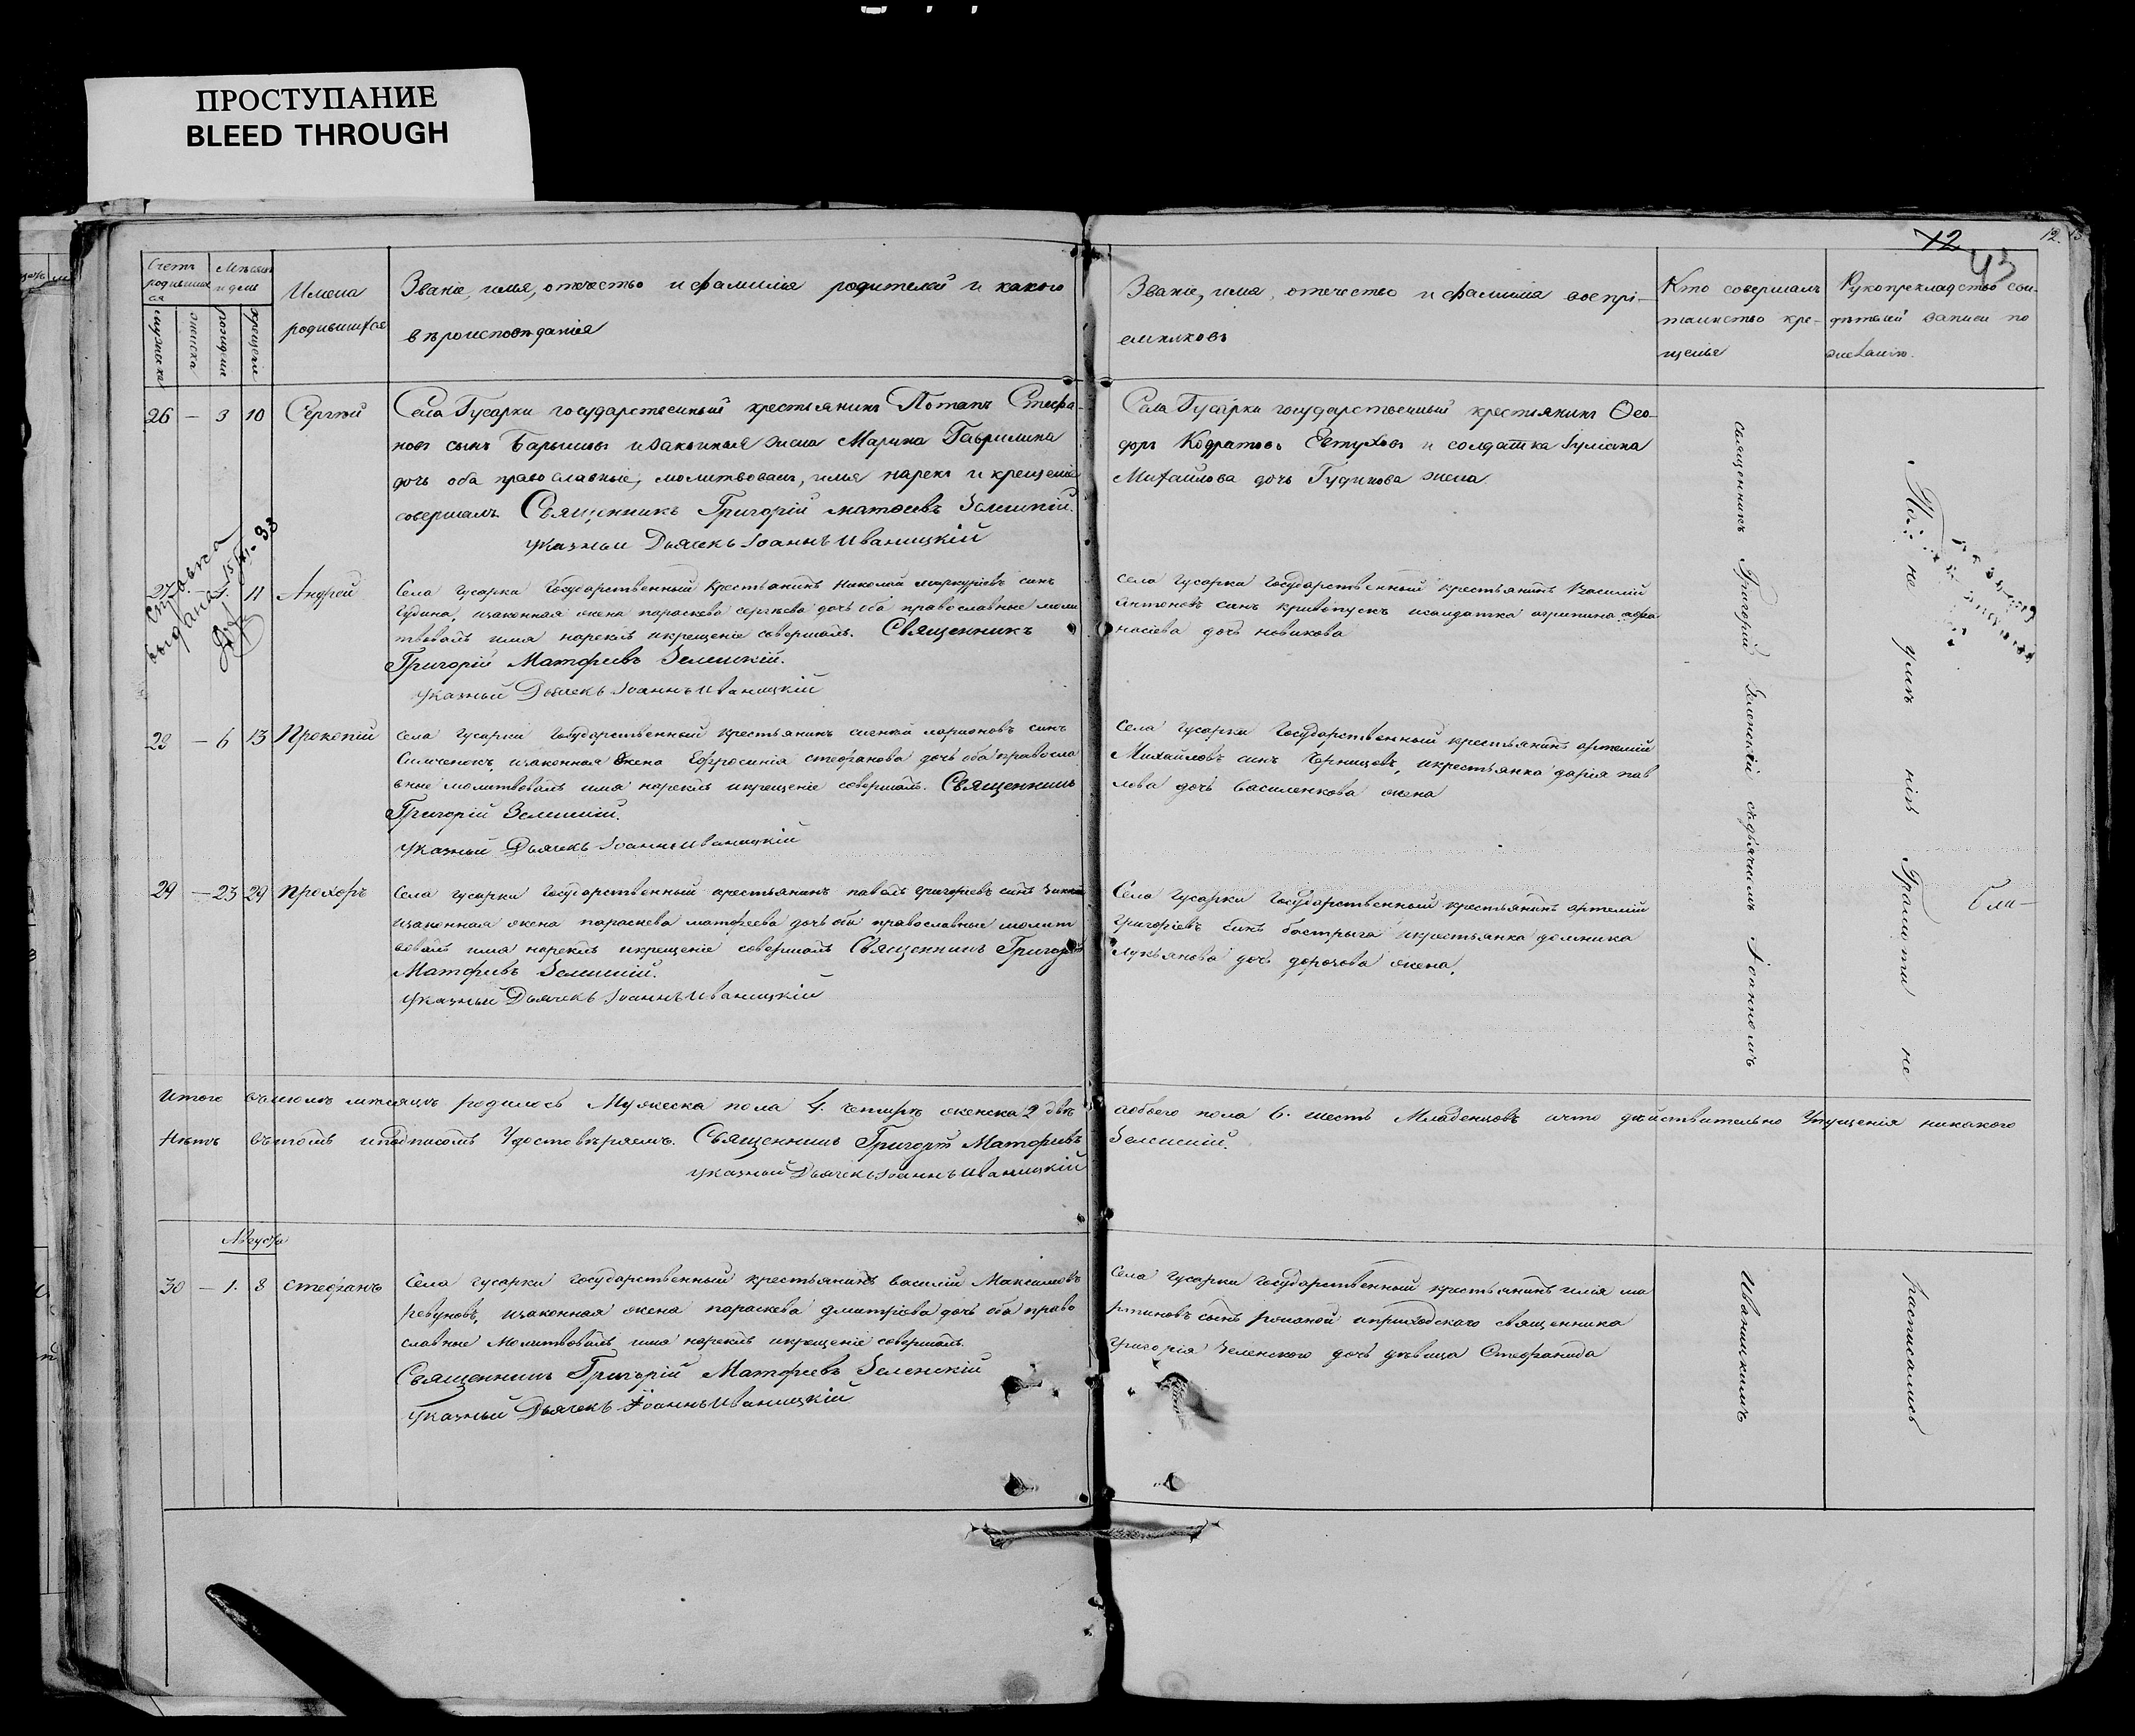 ПРОСТУПАНИЕ
BLEED THROUGH
12
12
43
Счетъ родившихся
Мѣсяцъ и день
мужеска
женска
рожденія
крещенія
Имена
родившихся
Званіе, имя, отечество и фамилія родителей и какого
вѣроисповѣданія
Званіе, имя, отечество и фамилія воспрі-
емниковъ
Кто совершалъ
таинство кре-
щенія
Рукоприкладство сви-
дѣтелей записи по
желанію.
26 — 3 10 Сергѣй
Села Гусарки государственный крестьянинъ Потапъ Стефа-
новъ сынъ Барышовъ и законная жена Марина Гаврилина
дочь оба православные, молитвовалъ, имя нарекъ и крещеніе
совершалъ Священникъ Григорій Матѳеевъ Зеленскій.
указный Дьячекъ Іоаннъ Иваницкій
Села Гусарки государственный крестьянинъ Ѳео-
доръ Кодратовъ Евтуховъ и солдатка Іуліана
Михайлова дочь Гудинова жена
справка
выдана
27 — 11 Андрей
села гусарки государственный крестьянинъ николай меркуріевъ синъ
гудина, изаконная жена параскева сергѣева дочь оба православные моли
твовалъ имя нарекъ икрещеніе совершалъ. Священникъ
Григорій Матфеевъ Зеленскій.
указный Дьячекъ Іоаннъ Иваницкій
села гусарки государственный крестьянинъ Василій
антоновъ синъ кривопускъ исолдатка агрипина афа
насіева дочь новикова
28 — 6 13 Прокопій
села гусарки государственный крестьянинъ
изаконная жена Ефросинія стефанова дочь оба правосла
вные молитвовалъ имя нарекъ икрещеніе совершалъ. Священникъ
Григорій Зеленскій.
указный Дьячекъ Іоаннъ Иваницкій
села гусарки государственный крестьянинъ артемій
Михайловъ синъ Чернищовъ, икрестьянка дарія пав
лова дочь василенкова жена
29 — 23 29 Прохоръ
села гусарки государственный крестьянинъ павелъ григорѣевъ синъ
изаконная жена параскева матфеева дочь оба православные молит
вовалъ имя нарекъ икрещеніе совершалъ Священникъ Григорій
Матфеевъ Зеленскій.
указный Дьячекъ Іоаннъ Иваницкій
Села гусарки государственный крестьянинъ артемій
григорѣевъ синъ бастрыга икрестьянка домника
лукьянова дочь жена.
Священникъ Григорій Зеленскій съдьячкомъ Іоанномъ
не умѣ ніѣ Грамоти не
Итого мѣсяцѣ родилось Мужеска пола 4. четыре женска 2 двѣ
аобоего пола 6. шесть Младенцовъ ичто дѣйствительно Упущенія никакого
нѣтъ вътомъ иподписомъ Удостовѣряемъ. Священникъ Григорій Матфеевъ
Зеленскій.
указный Дьячекъ Іоаннъ Иваницкій
Августа
30 — 1. 8 стефанъ
Села гусарки государственный крестьянинъ василій Максимовъ
ревуновъ, изаконная жена параскева дмитріева дочь оба право
славные Молитвовалъ имя нарекъ икрещеніе совершалъ.
Священникъ Григорій Матфеевъ Зеленскій
указный Дьячекъ Іоаннъ Иваницкій
села гусарки государственный крестьянинъ илія ма
ртиновъ сынъ иприходскаго священника
григорія Зеленского дочь дѣвица Стефанида
Иваницкимъ
расписались